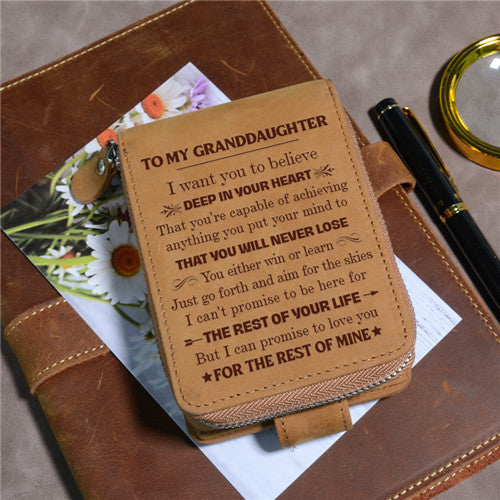 TO MY GRANDDAUGHTER
I want you to believe
DEEP IN YOUR HEART
That you're capable of achieving
anything you put your mind to
THAT YOU WILL NEVER LOSE
You either win or learn
Just go forth and aim for the skies
I can't promise to be here for
THE REST OF YOUR LIFE
But I can promise to love you
FOR THE REST OF MINE